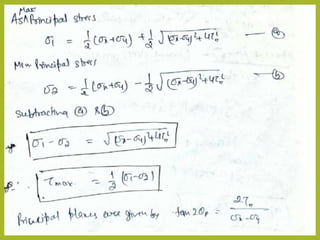 Max
As Principal stress
σ1 = 1/2 (σx+σy) + 1/2 √(σx-σy)²+4τ² — (a)
Min Principal stress
σ2 = 1/2 (σx+σy) - 1/2 √(σx-σy)²+4τ² — (b)
Subtracting (a) & (b)
σ1 - σ2 = √(σx-σy)²+4τ²
∴ τmax = 1/2 (σ1-σ2)
Principal planes are given by tan2θp = 2τ / σx-σy